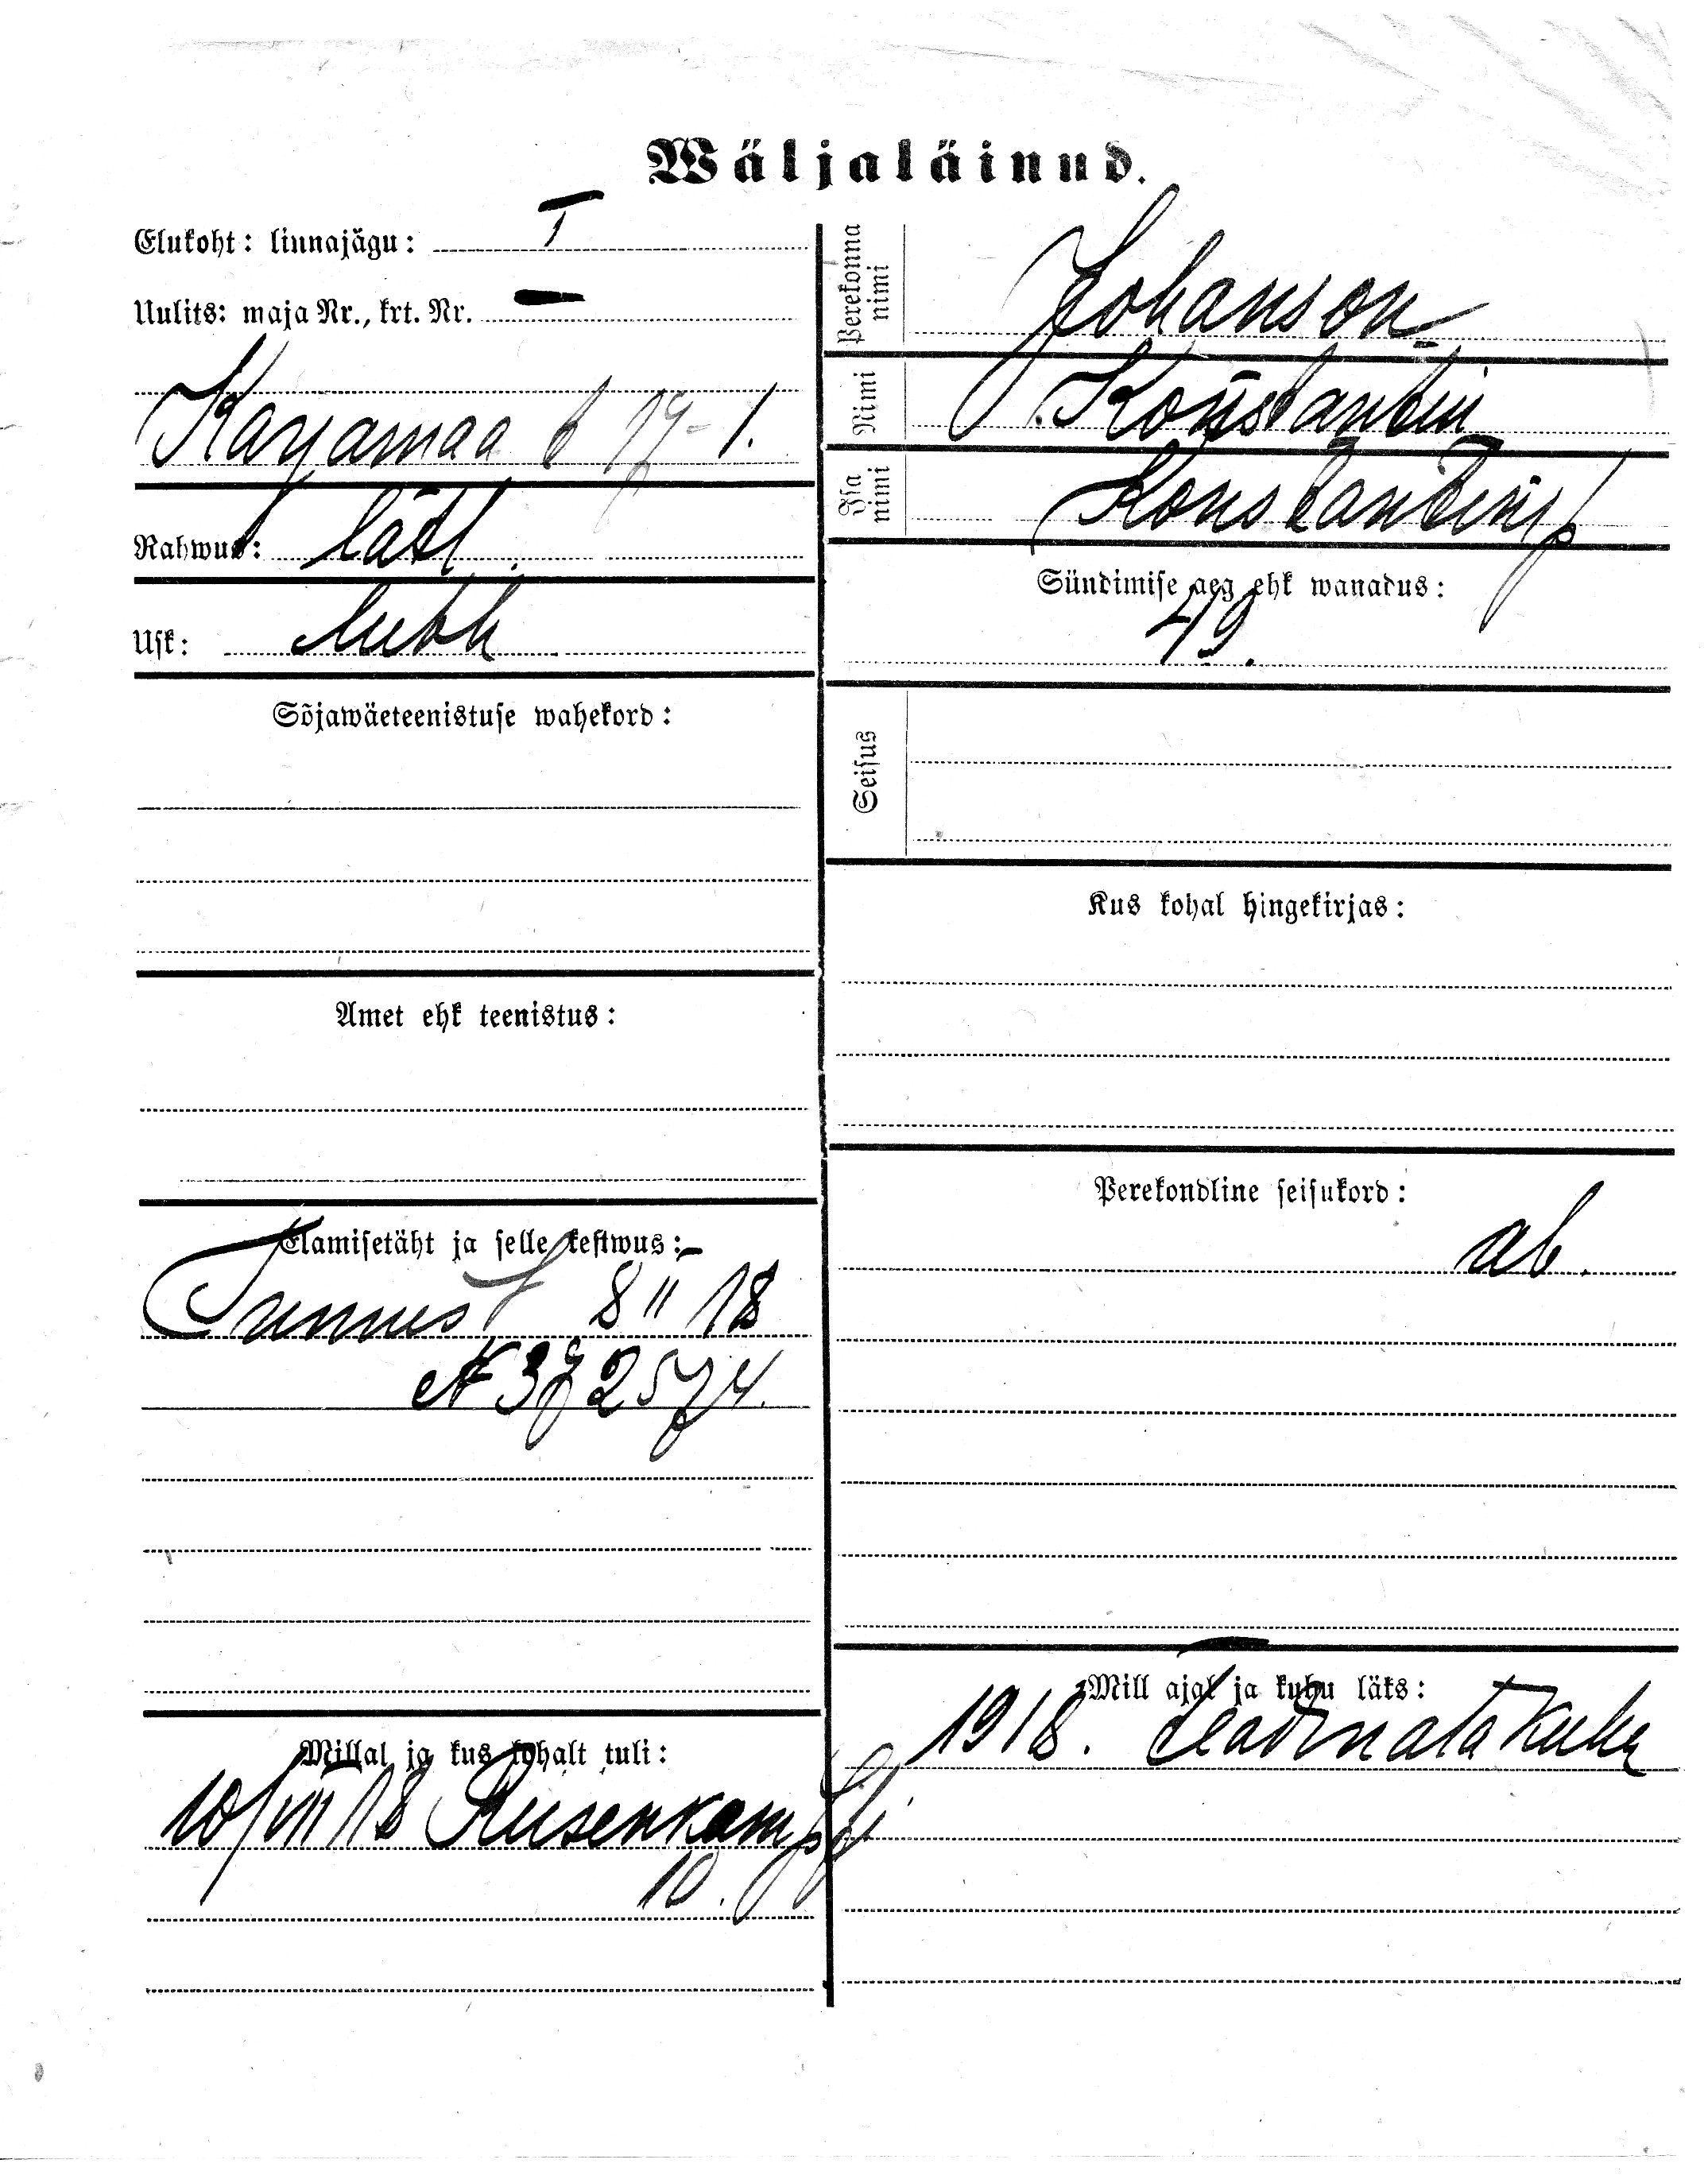 Wäljaläinud.
Elukoht: linnajägu: I
Uulits: maja Nr., krt. Nr. —
Karjamaa t 19-1.
Rahwus: lätl.
Usk: luth
Sõjawäeteenistuse wahekord:
Amet ehk teenistus:
Elamisetäht ja selle kestwus:
Tunnist 8 II 18
N 372574.
Millal ja kus kohalt tuli:
10/VII 18 Riisenkampfi
10.
Perekonna nimi Johanson
Nimi Konstantin
Isa nimi Konstantini p
Sündimise aeg ehk wanadus:
49.
Seisus
Kus kohal hingekirjas:
Perekondline seisukord:
ab.
Mill ajal ja kuhu läks:
1918. Teadmata kuhu